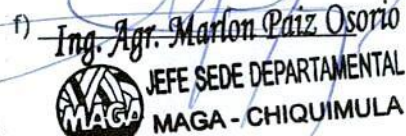 f) Ing. Agr. Marlon Paiz Osorio
JEFE SEDE DEPARTAMENTAL
MAGA MAGA - CHIQUIMULA